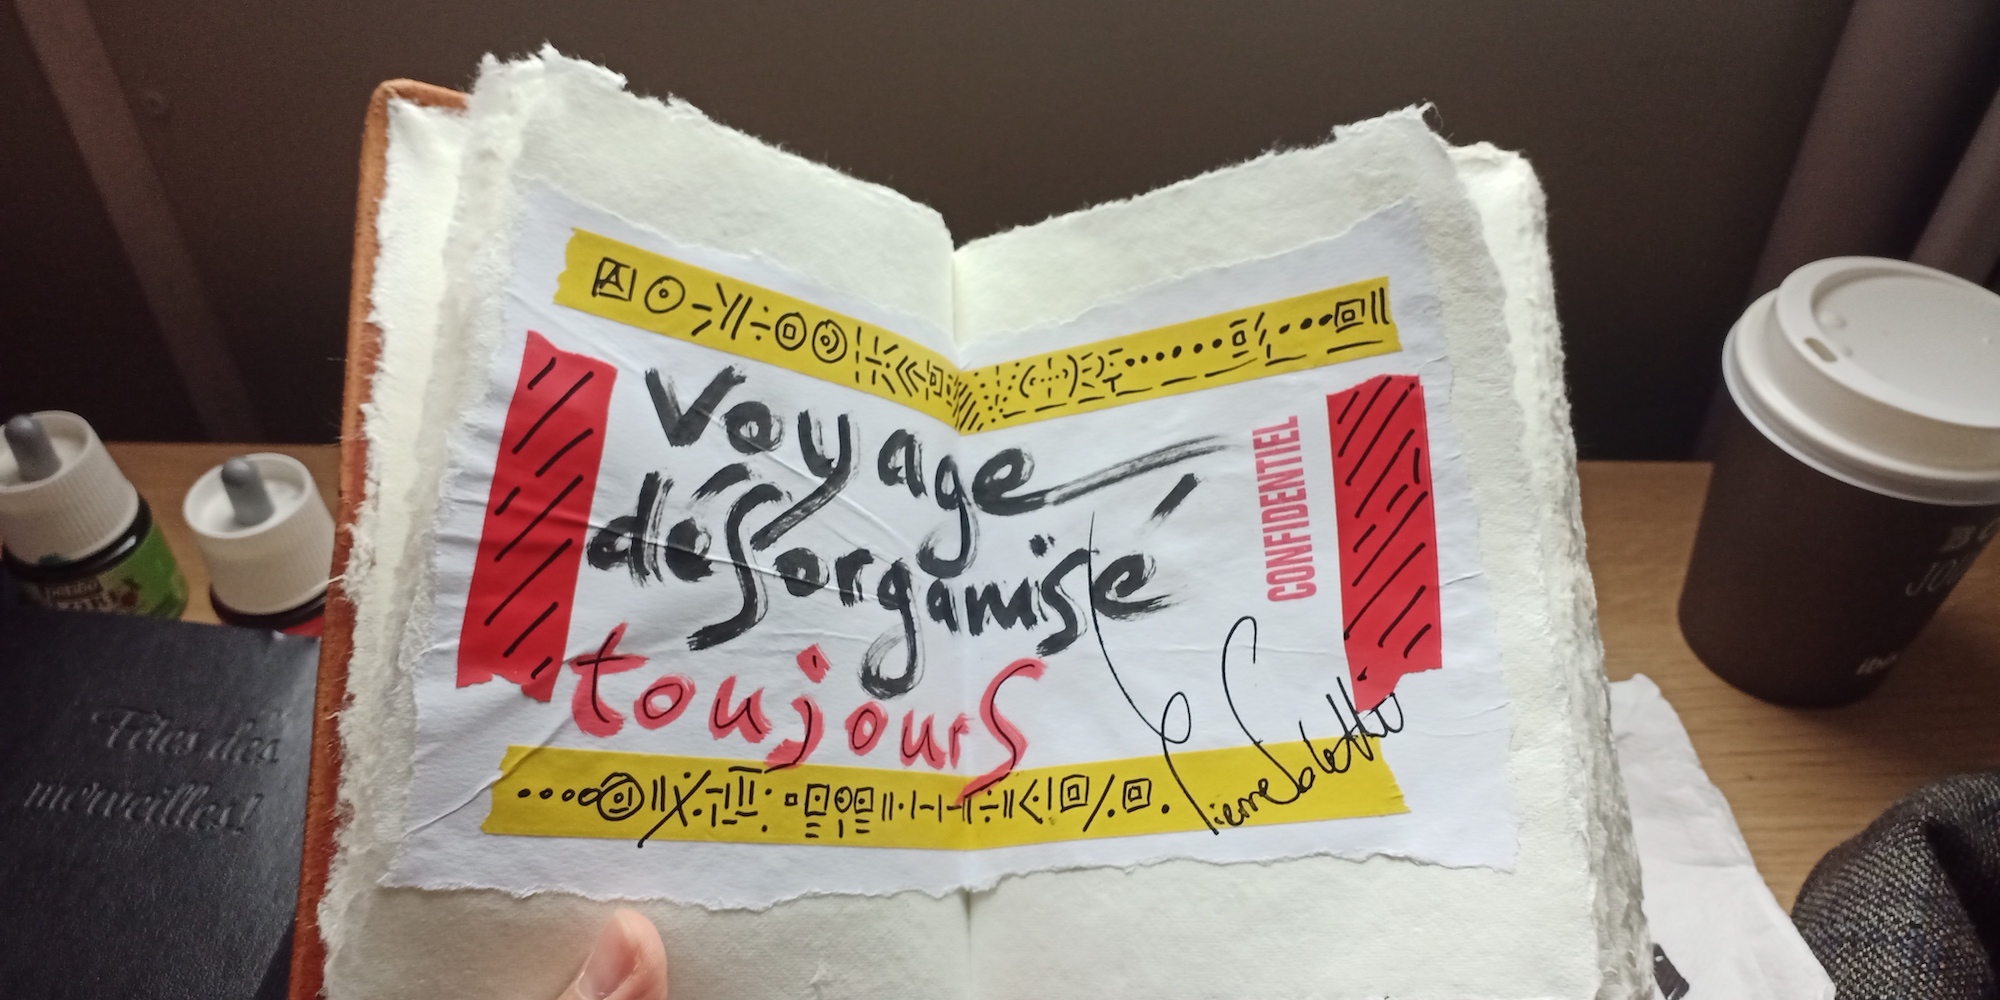 Voyage
désorganisé
toujours
CONFIDENTIEL
Fêtes des
merveilles!